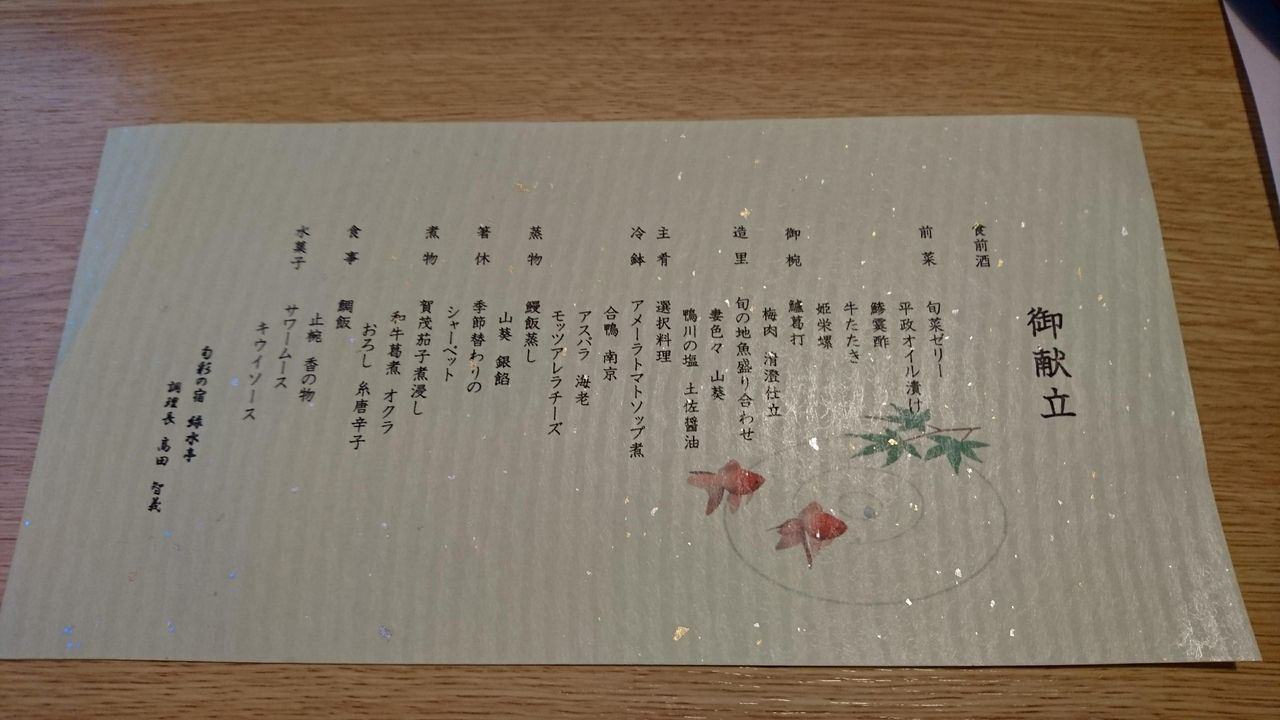 御献立
食前酒
前菜 旬菜ゼリー
平政オイル漬け
鯵霙酢
牛たたき
姫栄螺
御椀 鱸葛打
梅肉 清澄仕立
造里 旬の地魚盛り合わせ
妻色々 山葵
鴨川の塩 土佐醤油
主肴 選択料理
冷鉢 アメーラトマトソップ煮
合鴨 南京
アスパラ 海老
モッツアレラチーズ
蒸物 鰻飯蒸し
山葵 銀餡
箸休 季節替わりの
シャーベット
煮物 賀茂茄子煮浸し
和牛葛煮 オクラ
おろし 糸唐辛子
食事 鯛飯
止椀 香の物
水菓子 サワームース
キウイソース
旬彩の宿 緑水亭
調理長 高田 智義